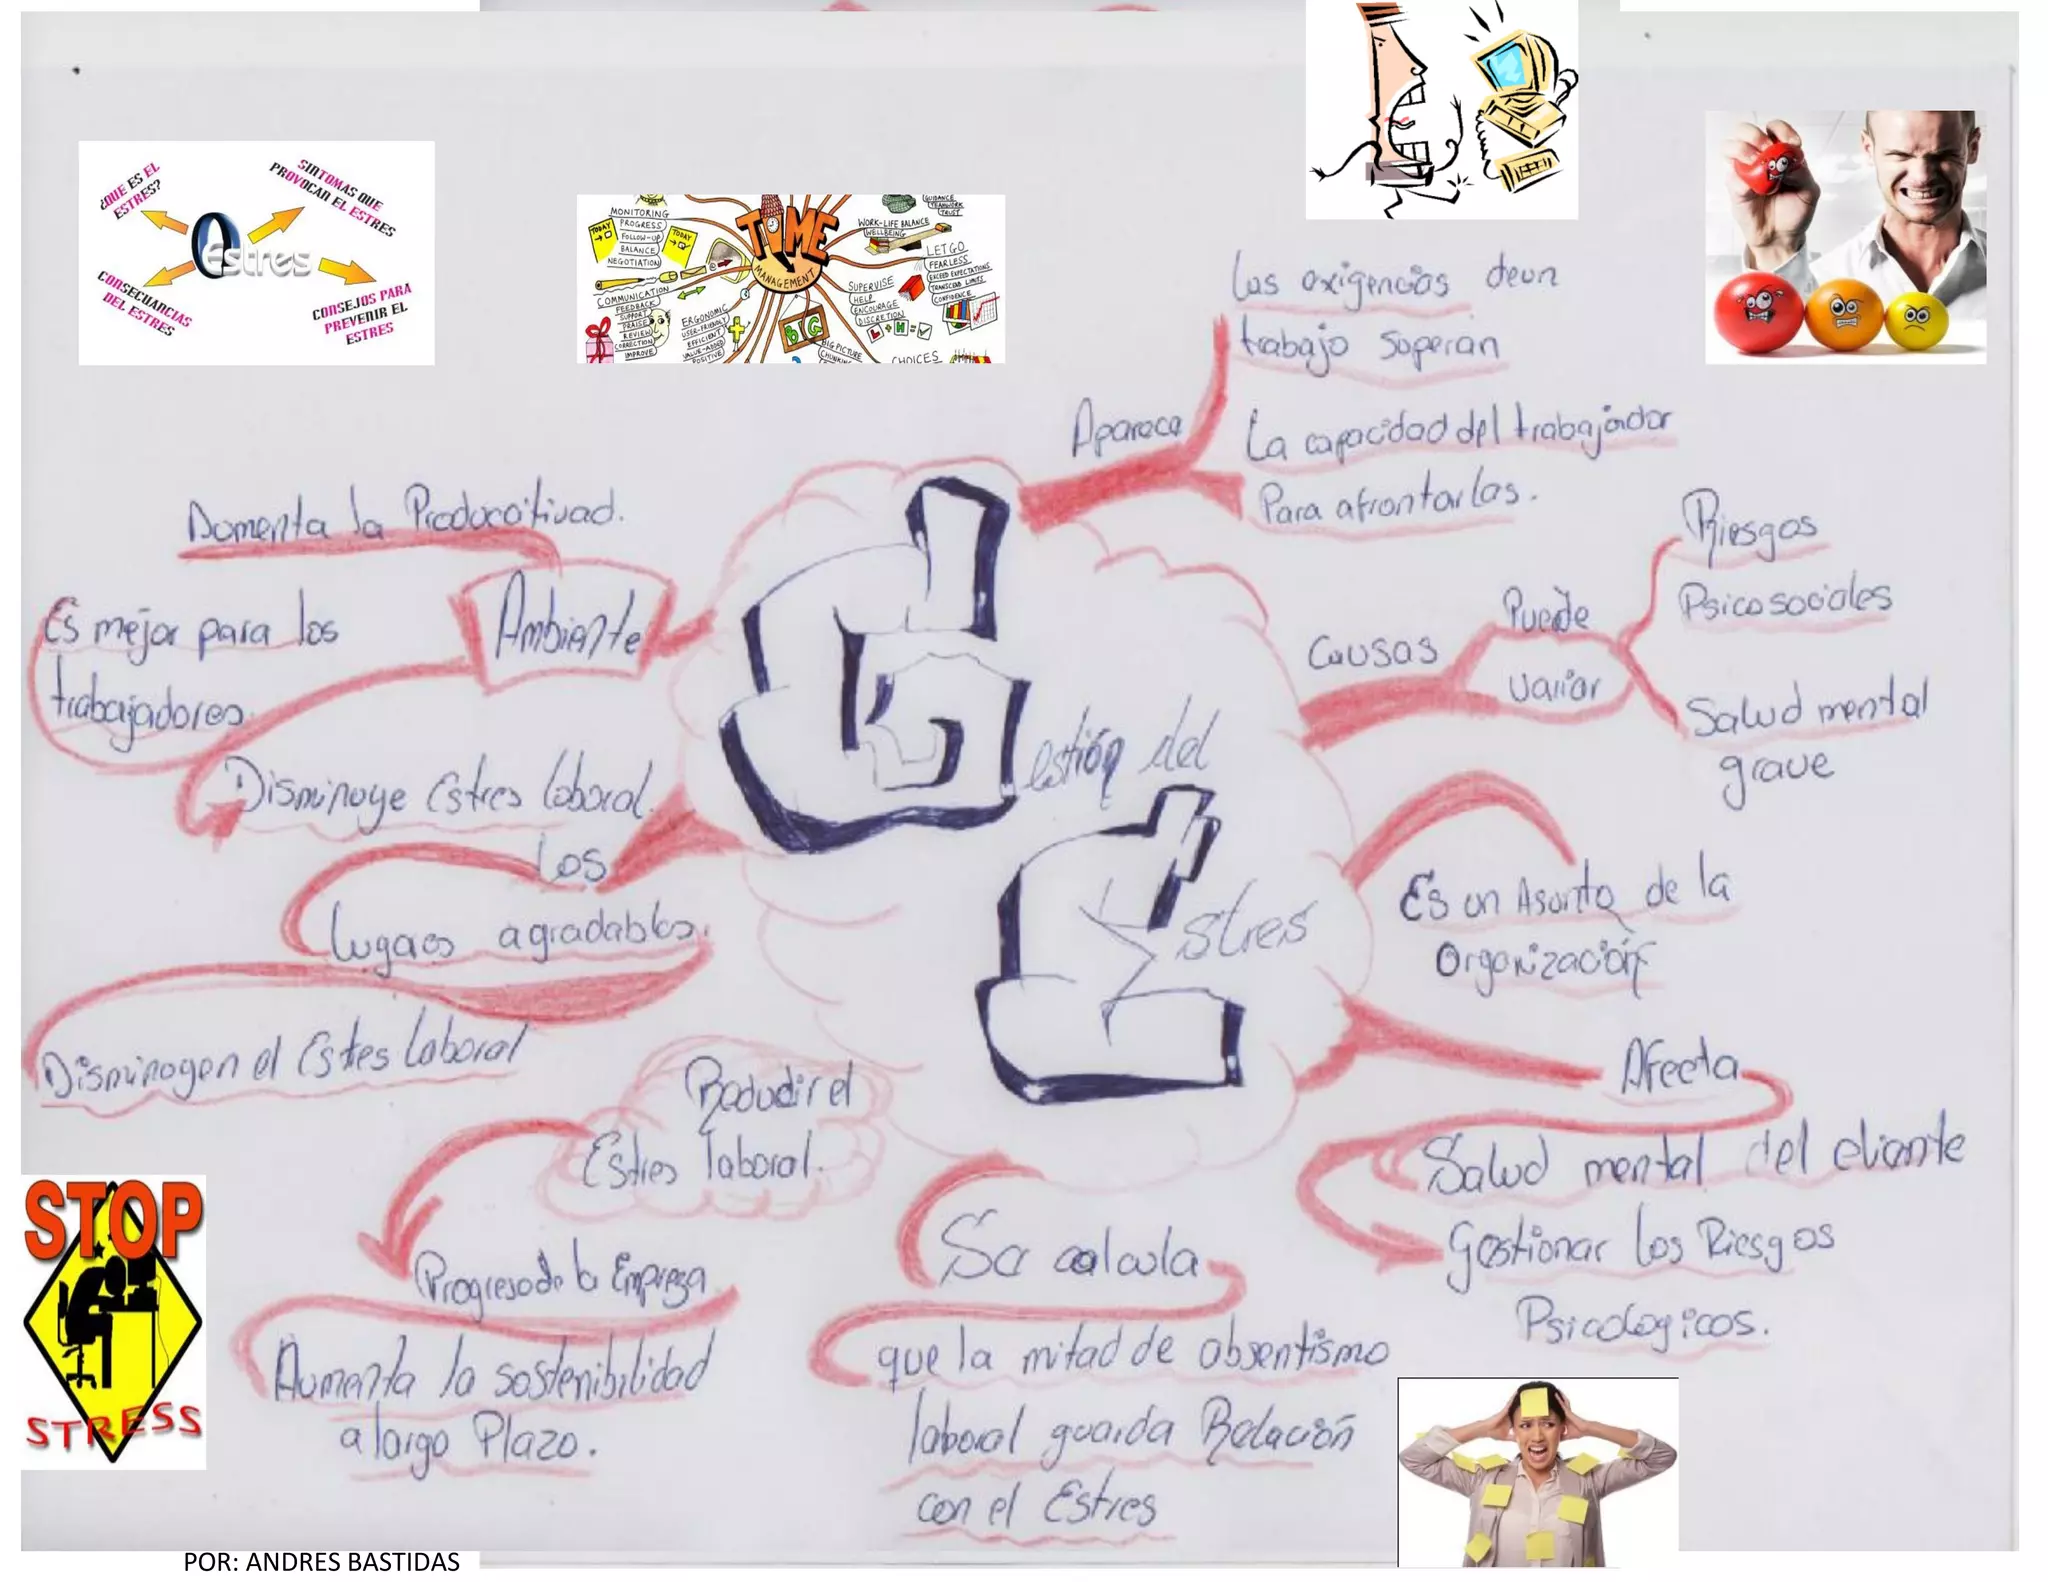 ¿QUE ES EL
ESTRES?
SINTOMAS QUE
PROVOCAN EL ESTRES
Estres
CONSECUANCIAS
DEL ESTRES
CONSEJOS PARA
PREVENIR EL
ESTRES
TIME
MANAGEMENT
MONITORING
PROGRESS
FOLLOW-UP
BALANCE
NEGOTIATION
TODAY
TODAY
COMMUNICATION
FEEDBACK
SUPPORT
PRAISE
REVIEW
CORRECTION
IMPROVE
ERGONOMIC
USER-FRIENDLY
EFFICIENT
VALUE-ADDED
POSITIVE
BIG
BIG PICTURE
CHUNKING
GUIDANCE
TEAMWORK
TRUST
WORK-LIFE BALANCE
WELLBEING
LET GO
FEARLESS
EXCEED EXPECTATIONS
TRANSCEND LIMITS
CONFIDENCE
SUPERVISE
HELP
ENCOURAGE
DISCRETION
L + H = ✓
CHOICES
Gestión del
Estres
Aparece
Las exigencias deun
trabajo Superan
La capacidad del trabajador
Para afrontarlas.
Causas
Puede
variar
Riesgos
Psicosociales
Salud mental
grave
Es un Asunto de la
Organización
Afecta
Salud mental del cliante
Gestionar los Riesgos
Psicologicos.
Se calcula
que la mitad de absentismo
laboral guarda Relación
con el Estres
Estres laboral.
Progreso de la Empresa
Aumenta la sostenibilidad
a largo Plazo.
Los
lugares agradables.
Disminogen el Estres Laboral
Ambiente
la
Es mejor para los
trabajadores.
Disminuye Estres laboral.
STOP
STRESS
POR: ANDRES BASTIDAS